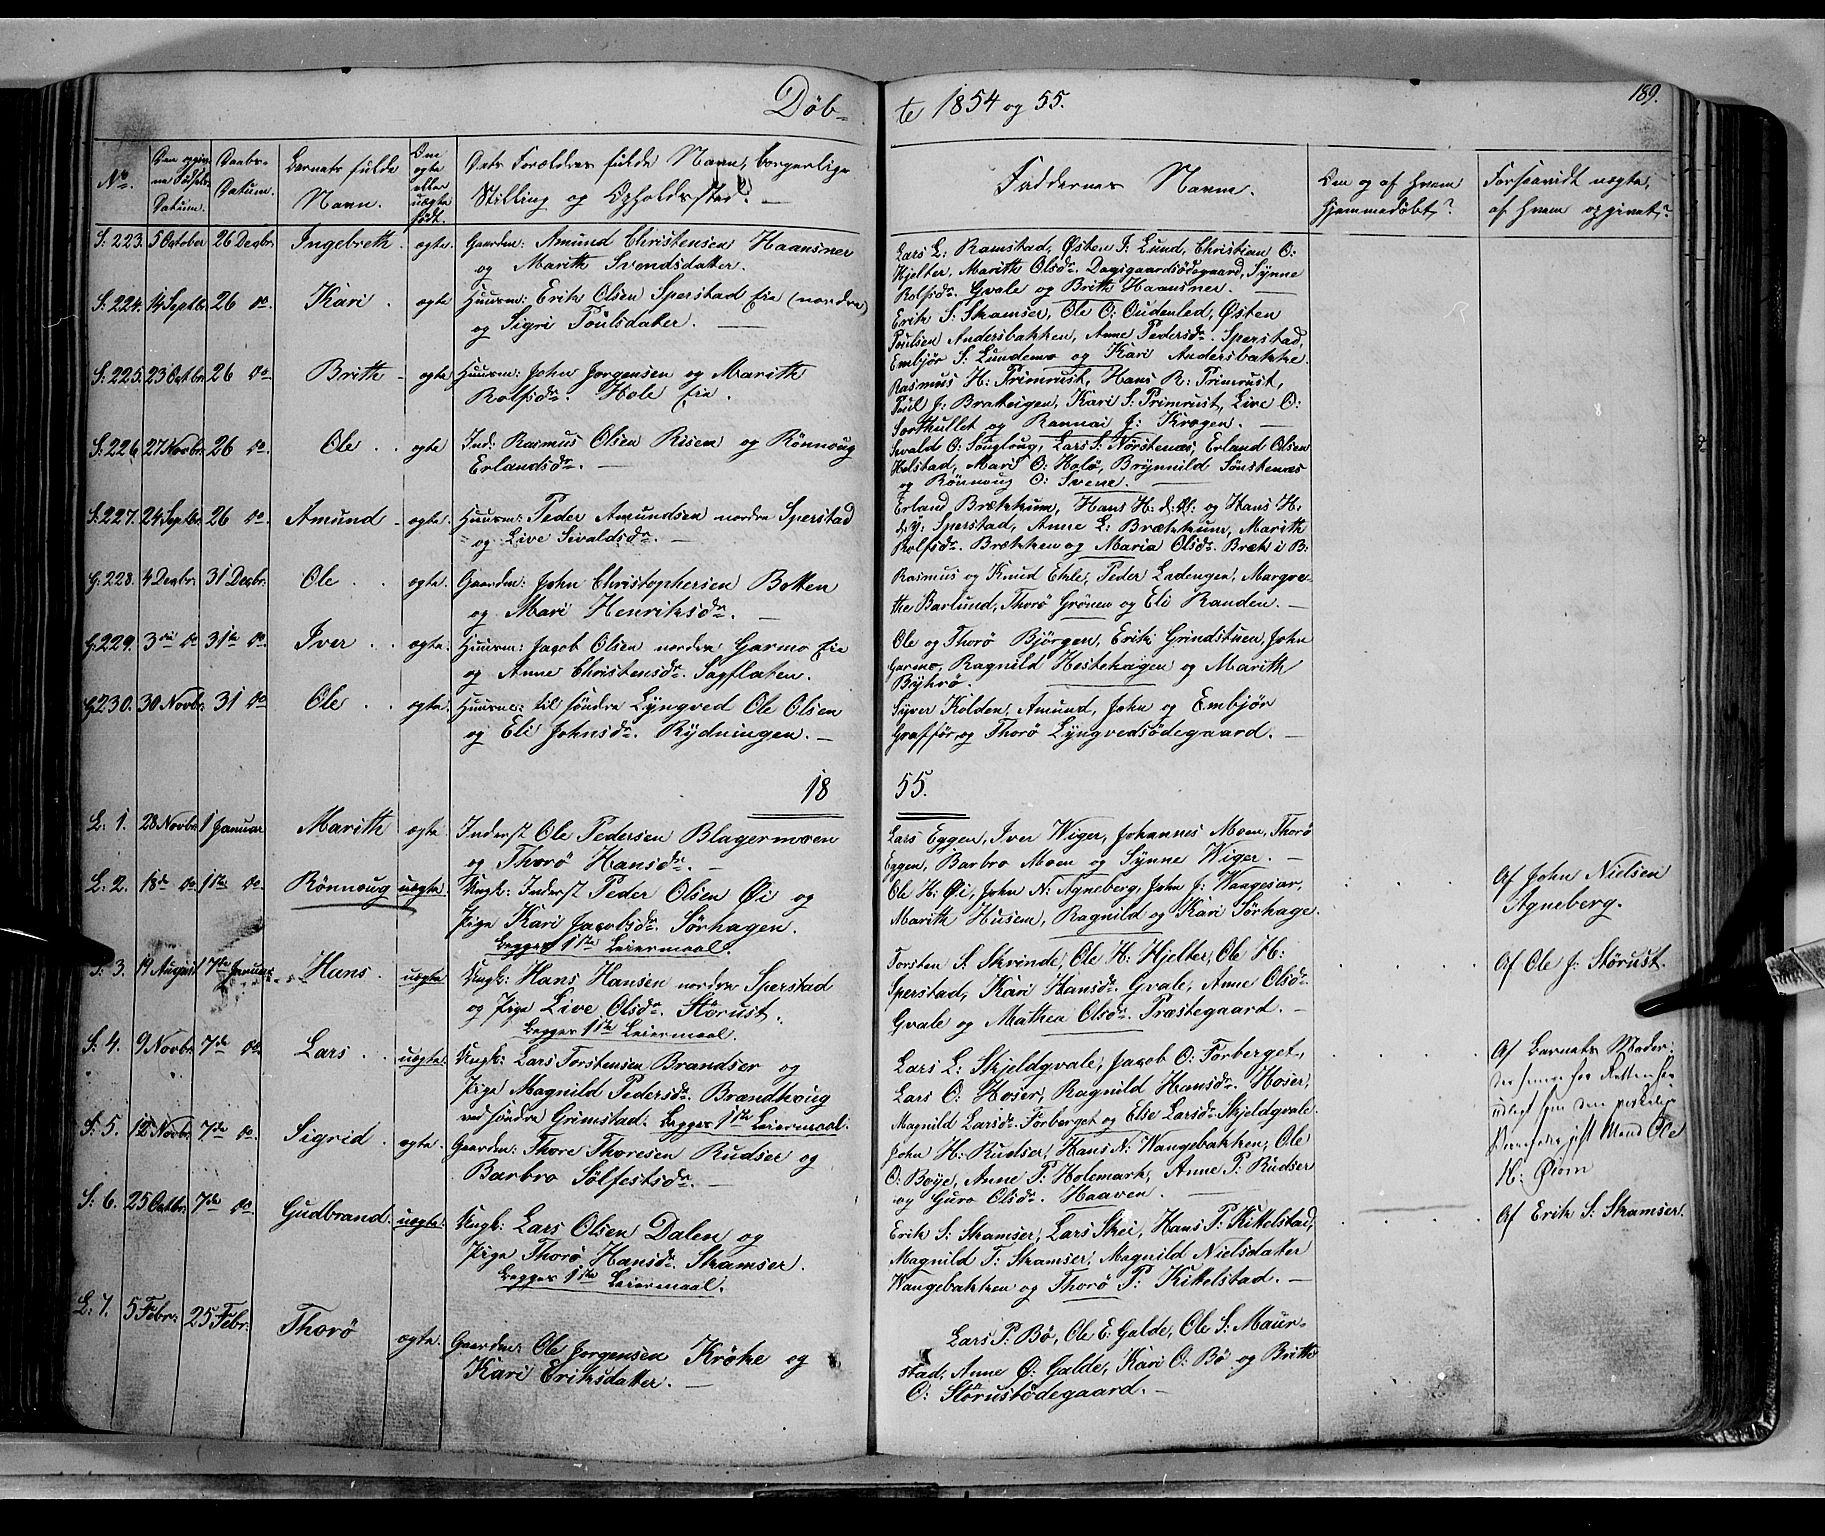 Döb-
te 1854 og 55.
189.
No.
Den opgivne Fødsels Datum.
Daabs-Datum.
Barnets fulde Navn.
Om ægte eller uægte født.
Dets Forældres fulde Navn, borgerlige
Stilling og Opholdssted.
Faddernes Navn.
Om og af hvem hjemmedøbt?
Forsaavidt uægte, af hvem opgivet?
S: 223. 5 October 26 Decbr. Ingebreth. ægte. Gaardm: Amund Christensen Haansner
og Marith Svendsdatter.
Lars L: Ramstad, Østen J: Lund, Christian O:
Hjelter, Marith Olsdr. Dagsgaardsödegaard, Synne
Rolfsdr. Gvale og Brith Haansner.
S: 224. 14 Septbr. 26 do. Kari. ægte Huusm: Erik Olsen Sperstad Eie (nordre)
og Sigri Poulsdatter.
Erik S: Skamser, Ole O: Oudenled, Østen
Poulsen Andersbakken, Anne Pedersdr. Sperstad,
Embjør S: Lundemo og Kari Andersbakke.
S: 225. 23 Octbr. 26 do Brith ægte Huusm: John Jorgensen og Marith
Rolfsdr. Hole Eie.
Rasmus H: Primrust, Hans R: Primrust,
Poul J: Brakeigen, Kari S: Primrust, Live O:
Sorthullet og Rannai J: Krogen.
S: 226. 27 Novbr. 26 do. Ole ægte Ind: Rasmus Olsen Risem og Rönnoug
Erlandsdr.
Sevald O: Songloug, Lars S: Norstenæs, Erland Olsen
Holstad, Mari O: Holö, Brynnild Sonstenæs
og Rönnoug O: Svene.
S: 227. 24 Septbr. 26 do. Amund ægte. Huusm: Peder Amundsen nordre Sperstad
og Live Sivaldsdr.
Erland Brækkum, Hans H: d: Æ: og Hans H:
d: Y: Sperstad, Anne L: Brækkum, Marith
Rolfsdr. Brækken og Maria Olsdr. Bræk i B:
G: 228. 4 Decbr. 31 Decbr. Ole ægte. Gaardm: John Christophersen Botten
og Mari Henriksdr.
Rasmus og Knud Ekle, Peder Ladengen, Margre-
the Barlund, Thorö Grönen og Eli Randen.
G: 229. 3die do 31te do. Iver ægte. Huusm: Jacob Olsen nordre Garmo Eie
og Anne Christensdr. Sagflaten.
Ole og Thorö Björgen, Erik Grindstuen, John
Garmo, Ragnild Hestehagen og Marith
Byhrö.
G: 230. 30 Novbr. 31 do Ole ægte. Huusm: til söndre Lyngved Ole Olsen
og Eli Johnsdr. Rydningen.
Syver Kolden, Amund, John og Embjör
Graffer og Thorö Lyngvedsödegaard.
18
55.
L: 1. 28 Novbr. 1 Januar Marith ægte. Inderst Ole Pedersen Blagermoen
og Thorö Hansdr.
Lars Eggen, Iver Wiger, Johannes Moen, Thorö
Eggen, Barbro Moen og Synne Wiger.
L: 2. 18de do 1ste do. Rönnoug uægte. Ungk: Inderst Peder Olsen Øi og
Pige Kari Jacobsdr. Sørhagen.
Begges 1ste Leiermaal.
Ole H: Øi, John N: Agneberg, John J: Wangesar,
Marith Husem, Ragnild og Kari Sørhage.
Af John Nielsen
Agneberg.
S: 3. 19 August 7de Januar Hans. uægte Ungk: Hans Hansen nordre Sperstad
og Pige Live Olsdr. Störust.
Begges 1ste Leiermaal.
Torsten S: Skrinde, Ole H: Hjelter, Ole H:
Sperstad, Kari Hansdr. Gvale, Anne Olsdr.
Gvale og Mathea Olsdr. Præstegaard.
Af Ole J: Störust.
S: 4. 9 Novbr. 7de do. Lars uægte. Ungk: Lars Torstensen Brandser og
Pige Magnild Pedersdr. Brandhoug
ved söndre Grimstad: Begges 1ste Leiermaal.
Lars L: Skjeldgvale, Jacob O: Forberget,
Lars O: Hoser, Ragnild Hansdr. Hoser,
Magnild Larsdr. Forberget og Else Larsdr. Skjeldgvale.
Af Barnets Moder.
Mand Ole
H: Øiom
S: 5. 12 Novbr. 7de do. Sigrid ægte. Gaardm: Thore Thoresen Rudser og
Barbro Sölfestsdr.
John H: Rudser, Hans N: Wangebakken, Ole
O: Boye, Anne P: Holemark, Anne P: Rudser
og Guro Olsdr. Haaven.
S: 6. 25 Octbr. 7de do. Gudbrand uægte. Ungk: Lars Olsen Dalen og
Pige Thorö Hansdr. Skamser.
Begges 1ste Leiermaal.
Erik S: Skamser, Lars Skei, Hans P: Kikelstad,
Magnild T: Skamser, Magnild Nielsdatter
Wangebakken og Thorö P: Kikelstad.
Af Erik S: Skamser.
L: 7. 5 Febr: 25 Febr: Thorö ægte. Gaardm: Ole Jorgensen Kröke og
Kari Eriksdatter.
Lars P: Bö, Ole E: Galde, Ole S: Maur-
stad, Anne O: Galde, Kari O: Bö og Brith
O: Störustödegaard.